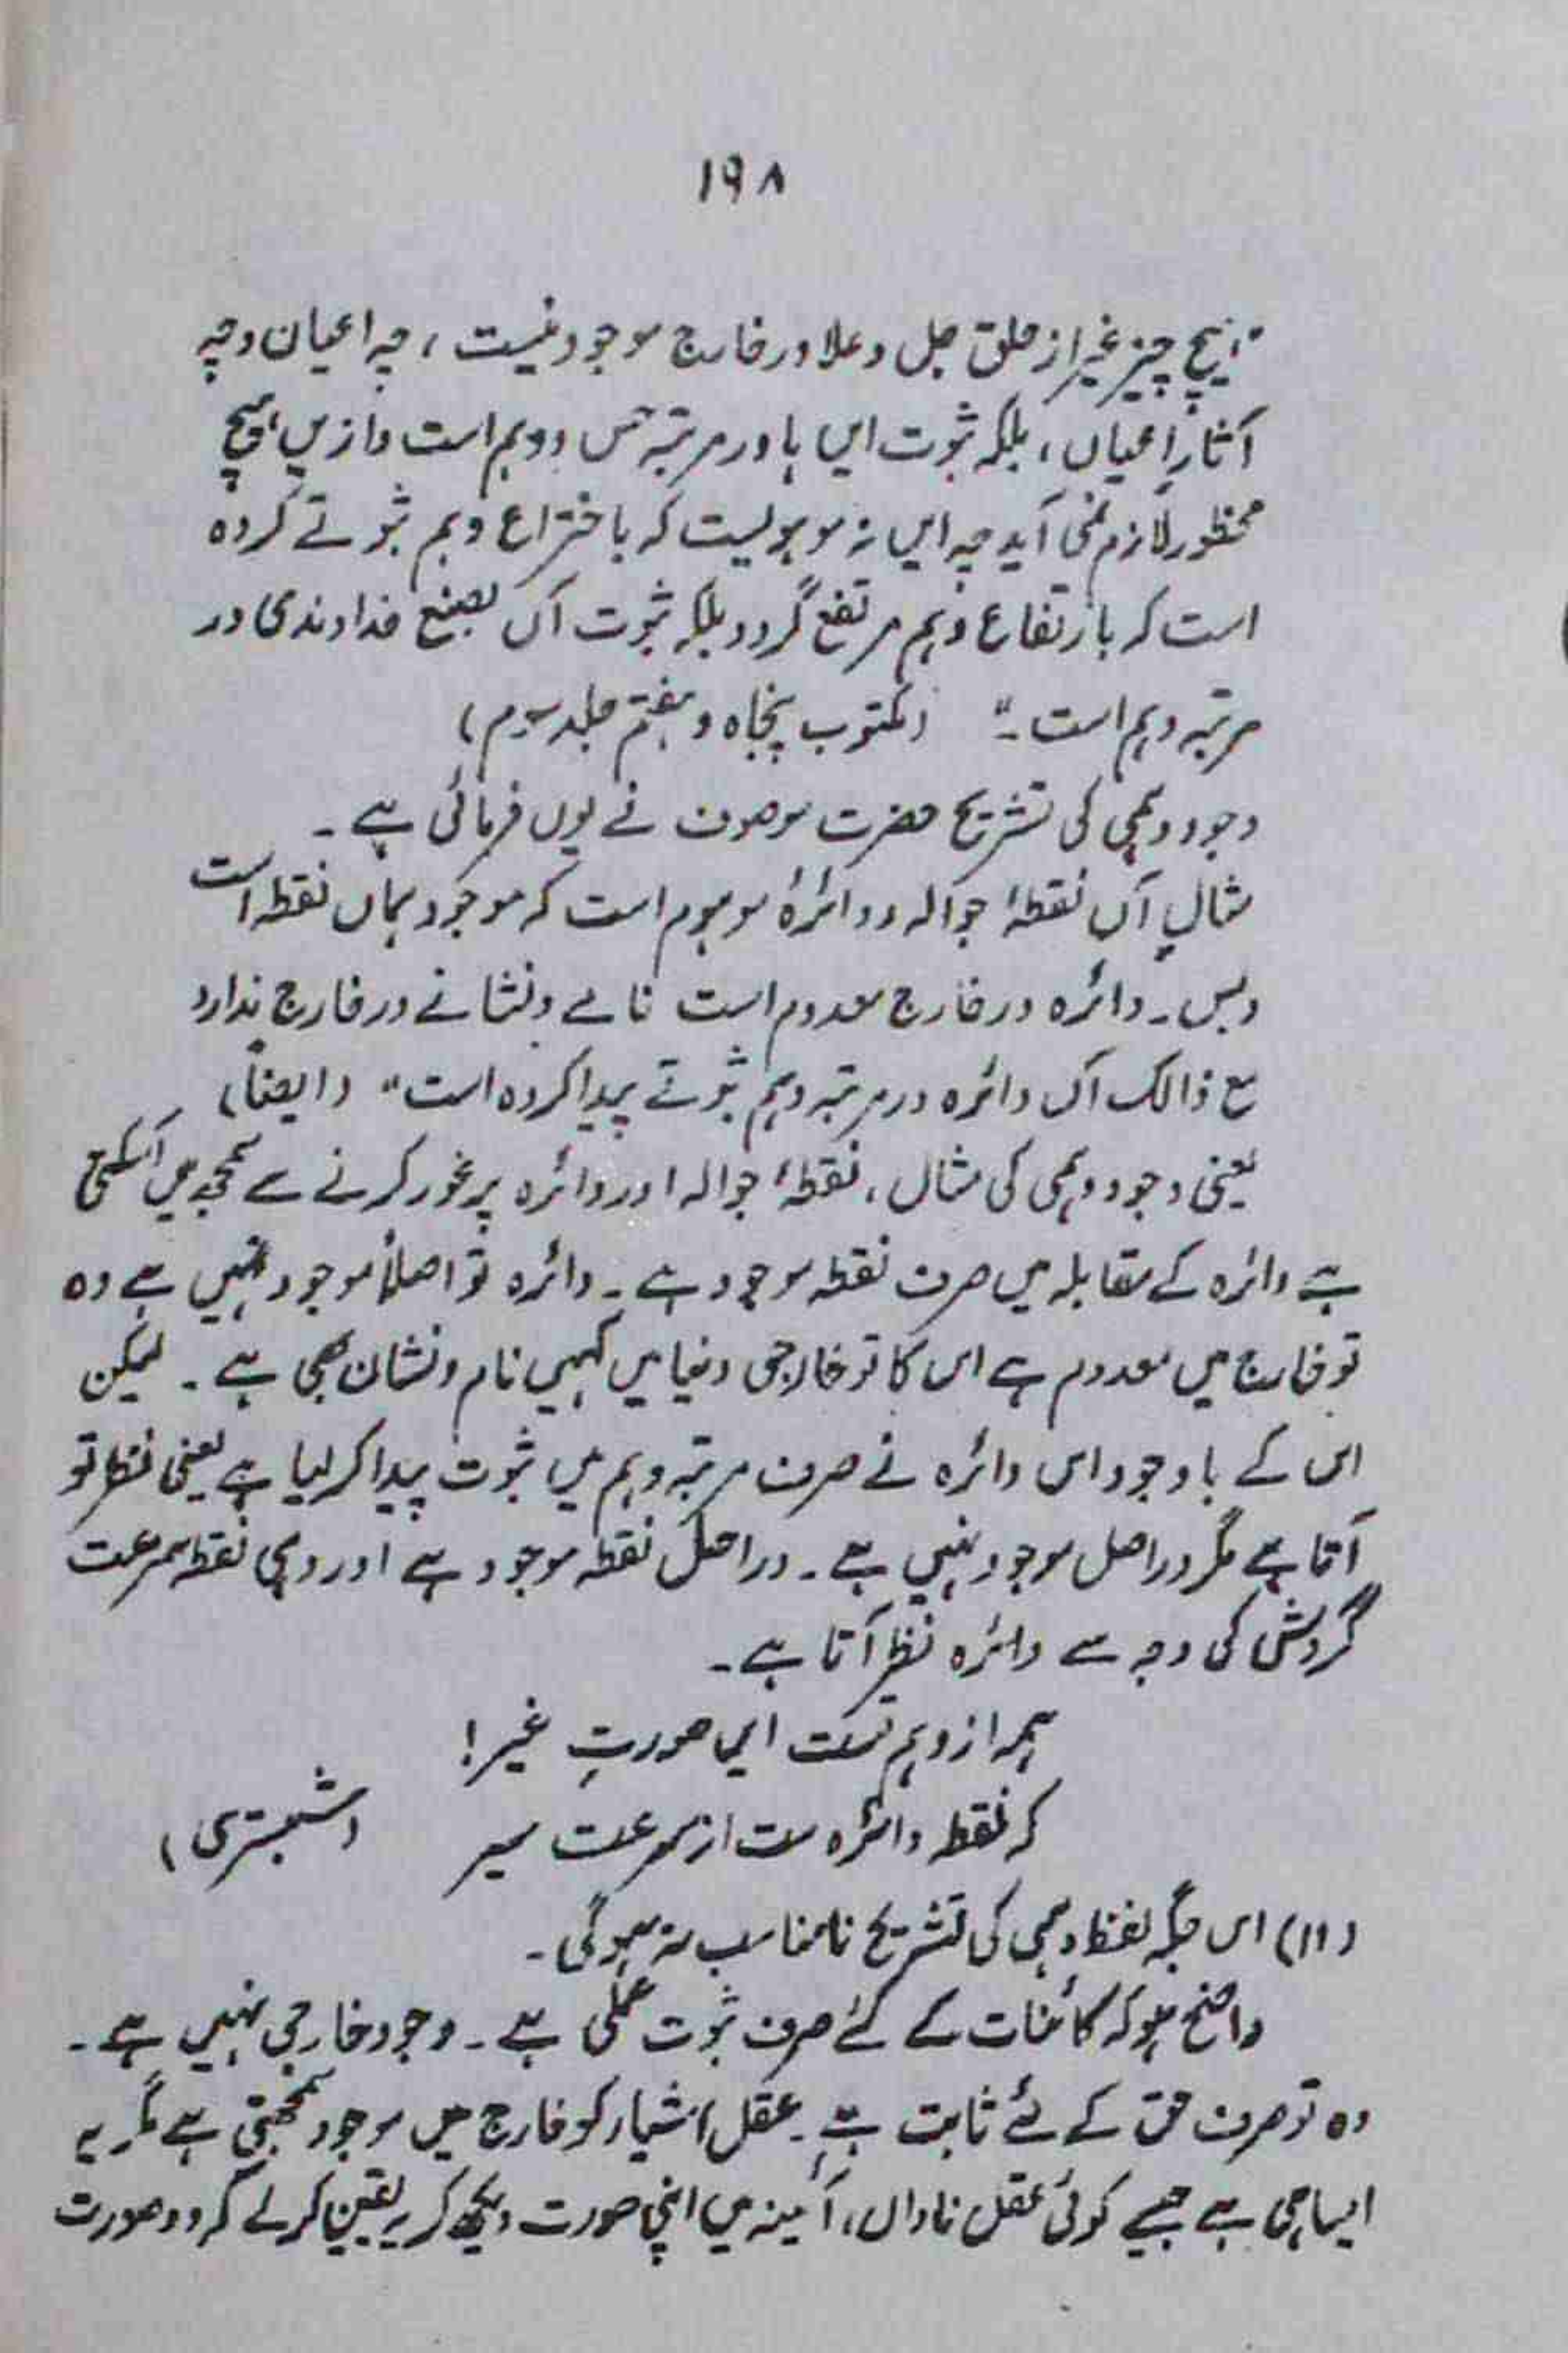 ۱۹۸
"ہیچ چیز غیر از حق جل وعلا در خارج موجود نیست، چہ اعیان وچہ
آثارِ اعیاں، بلکہ ثبوت ایں ہا در مرتبہ حس و وہم است وازیں ہیچ
محظور لازم نمی آید چہ ایں نہ موہومیست کہ باختراع وہم ثبوتے کردہ
است کہ بارتفاع وہم مرتفع گردد بلکہ ثبوت آں بصنع خداوندی در
مرتبہ وہم است۔" (مکتوب پنجاہ وہفتم جلد سوم)
وجود وہمی کی تشریح حضرت موصوف نے یوں فرمائی ہے۔
مثالِ آں نقطۂ جوالہ و دائرۂ موہوم است کہ موجود ہماں نقطہ است
وبس۔ دائرہ در خارج معدوم است نامے ونشانے در خارج ندارد
مع ذالک آں دائرہ در مرتبہ وہم ثبوتے پیدا کردہ است" (ایضاً)
یعنی وجود وہمی کی مثال، نقطۂ جوالہ اور دائرہ پر غور کرنے سے سمجھ میں آسکتی
ہے دائرہ کے مقابلہ میں صرف نقطہ موجود ہے۔ دائرہ تو اصلاً موجود نہیں ہے وہ
تو خارج میں معدوم ہے اس کا تو خارجی دنیا میں کہیں نام ونشان بھی ہے۔ لیکن
اس کے باوجود اس دائرہ نے صرف مرتبہ وہم میں ثبوت پیدا کرلیا ہے یعنی نظر تو
آتا ہے مگر دراصل موجود نہیں ہے۔ دراصل نقطہ موجود ہے اور وہی نقطہ سرعت
گردش کی وجہ سے دائرہ نظر آتا ہے۔
ہمہ از وہم تست ایں صورتِ غیر!
کہ نقطہ دائرہ ست از سرعت سیر (شبستری)
(۱۱) اس جگہ لفظ وہمی کی تشریح نامناسب نہ ہوگی۔
واضح ہو کہ کائنات کے لئے صرف ثبوت علمی ہے۔ وجود خارجی نہیں ہے۔
وہ تو صرف حق کے لئے ثابت ہے۔ عقل اشیاء کو خارج میں موجود سمجھتی ہے مگر یہ
ایسا ہی ہے جیسے کوئی عقل ناداں، آئینہ میں اپنی صورت دیکھ کر یہ یقین کرلے کہ وہ صورت